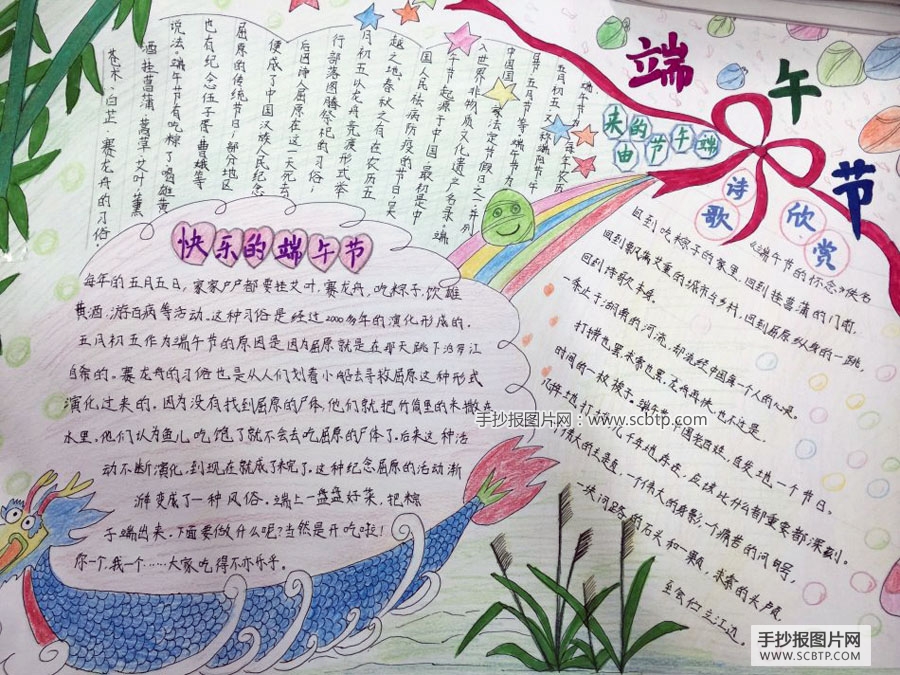 端午节
端午节的由来
端午节为每年农历
五月初五，又称端阳节、午
日节、五月节等。端午节为
中国国家法定节假日之一，并列
入世界非物质文化遗产名录。端
午节起源于中国，最初是中
国人民祛病防疫的节日，吴
越之地春秋之前有在农历五
月初五以龙舟竞渡形式举
行部落图腾祭祀的习俗；
后因诗人屈原在这一天死去
便成了中国汉族人民纪念
屈原的传统节日；部分地区
也有纪念伍子胥、曹娥等
说法。端午节有吃粽子，喝雄黄
酒，挂菖蒲、蒿草、艾叶，薰
苍术、白芷，赛龙舟的习俗。
快乐的端午节
每年的五月五日，家家户户都要挂艾叶，赛龙舟，吃粽子，饮雄
黄酒，游百病等活动。这种习俗是经过2000多年的演化形成的。
五月初五作为端午节的原因是因为屈原就是在那天跳下汨罗江
自杀的。赛龙舟的习俗也是从人们划着小船去寻救屈原这种形式
演化过来的。因为没有找到屈原的尸体，他们就把竹筒里的米撒在
水里。他们认为鱼儿吃饱了就不会去吃屈原的尸体了。后来这种活
动不断演化，到现在就成了来完了。这种纪念屈原的活动渐
渐变成了一种风俗。端上一盘盘好菜，把粽
子端出来，下面要做什么呢？当然是开吃啦！
你一个，我一个……大家吃得不亦乐乎。
诗歌欣赏
《端午节的怀念》佚名
回到吃粽子的家里，回到挂菖蒲的门前，
回到飘满艾熏的城市与乡村，回到屈原纵身的一跳，
回到诗歌本身。
一条止于汨罗的河流，却流经中国每一个人的心灵。
打捞也罢，未索也罢，龙舟再快，也不过是，
时间的一枚梭子。端午节，中国老百姓，自发地一个节日。
几乎土地打，几千年地存在，应该比什么都重要都深刻。
伟大的夫是夏，一个伟大的身影，一个痛苦的问号，
一块问路的石头和一颗，求索的头颅，
至今伫立江边。
手抄报图片网：www.scbtp.com
手抄报图片网
WWW.SCBTP.COM